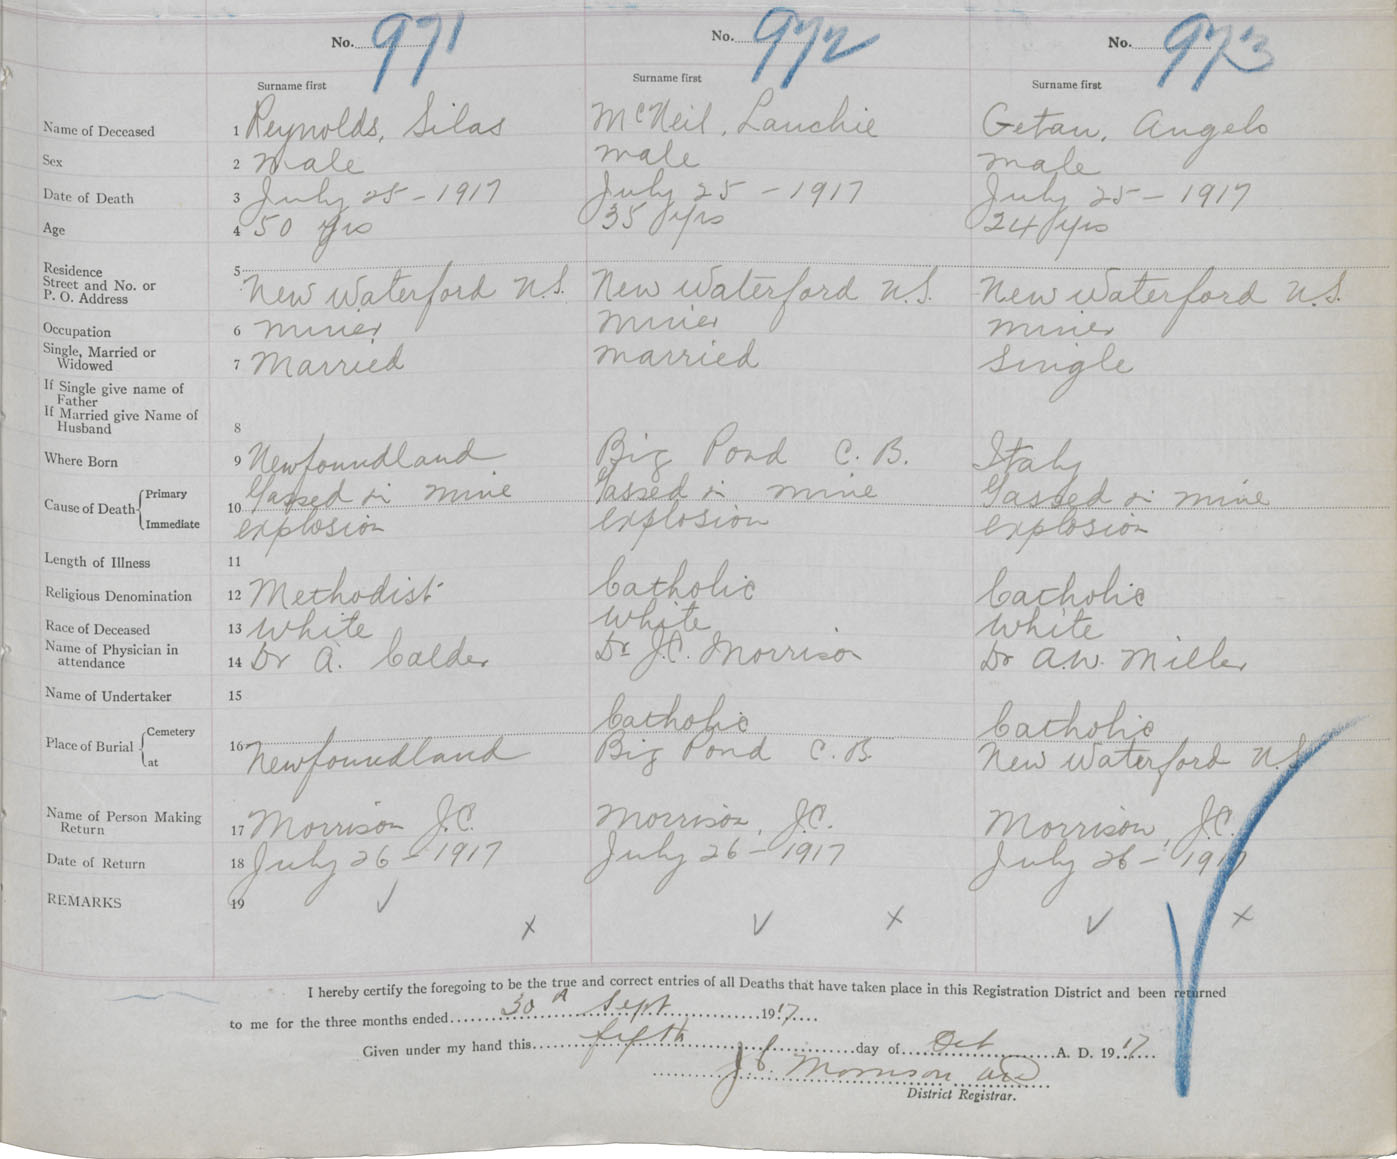 No. 971 No. 972 No. 973
Surname first Surname first Surname first
Name of Deceased 1 Reynolds, Silas McNeil, Lauchie Getau, Angelo
Sex 2 male male male
Date of Death 3 July 25-1917 July 25-1917 July 25-1917
Age 4 50 yrs 35 yrs 24 yrs
Residence
Street and No. or
P. O. Address 5 New Waterford N.S. New Waterford N.S. New Waterford N.S.
Occupation 6 miner miner miner
Single, Married or
Widowed 7 Married married single
If Single give name of
Father
If Married give Name of
Husband 8
Where Born 9 Newfoundland Big Pond C. B. Italy
Cause of Death Primary 10 Gassed in mine Gassed in mine Gassed in mine
Immediate explosion explosion explosion
Length of Illness 11
Religious Denomination 12 Methodist Catholic Catholic
Race of Deceased 13 White White White
Name of Physician in
attendance 14 Dr A. Calder Dr J.C. Morrison Dr A.W. Miller
Name of Undertaker 15
Place of Burial Cemetery 16 Catholic Catholic
at Newfoundland Big Pond C.B. New Waterford N.S.
Name of Person Making
Return 17 Morrison J.C. Morrison, J.C. Morrison, J.C.
Date of Return 18 July 26-1917 July 26-1917 July 26-1917
REMARKS 19
I hereby certify the foregoing to be the true and correct entries of all Deaths that have taken place in this Registration District and been returned
to me for the three months ended 30 Sept 1917
Given under my hand this fifth day of Oct A. D. 1917
J.C. Morrison
District Registrar.